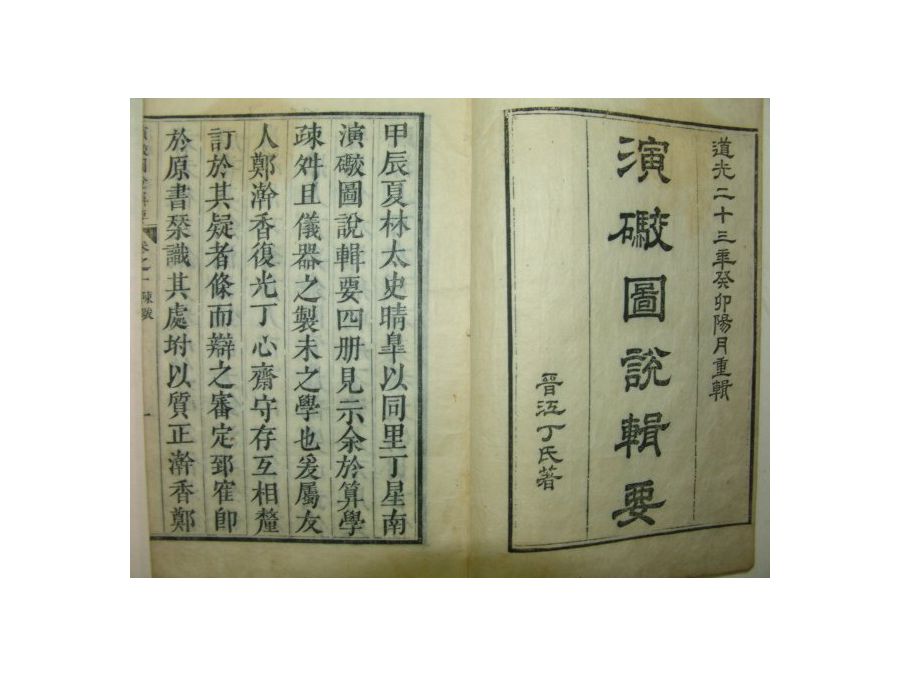 道光二十三年癸卯陽月重輯
演礮圖說輯要
晉江丁氏著
甲辰夏林太史晴臯以同里丁星南
演礮圖說輯要四册見示余於算學
疎舛且儀器之製未之學也爰屬友
人鄭澣香復光丁心齋守存互相釐
訂於其疑者條而辯之審定郅寉即
於原書棨識其處坿以質正澣香鄭
卷之一